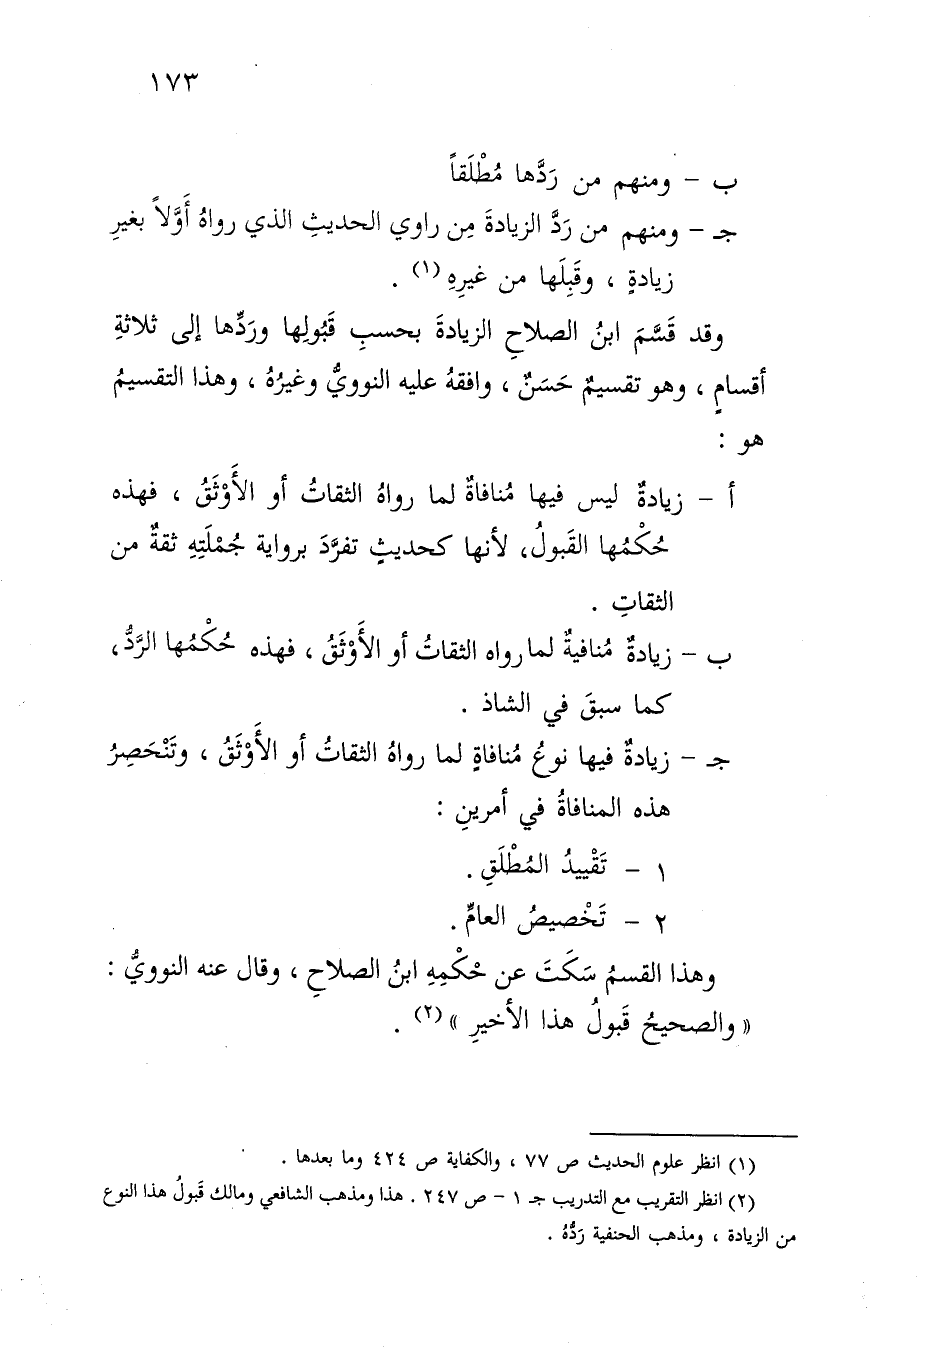 ١٧٣
ب - ومنهم من رَدَّها مُطْلَقاً
جـ - ومنهم من رَدَّ الزيادةَ مِن راوي الحديثِ الذي رواهُ أَوَّلاً بغيرِ
زيادةٍ ، وقَبِلَها من غيرِهِ (١) .
وقد قَسَّمَ ابنُ الصلاحِ الزيادةَ بحسبِ قَبُولِها ورَدِّها إلى ثلاثةِ
أقسامٍ ، وهو تقسيمٌ حَسَنٌ ، وافقهُ عليه النوويُّ وغيرُهُ ، وهذا التقسيمُ
هو :
أ - زيادةٌ ليس فيها مُنافاةٌ لما رواهُ الثقاتُ أو الأَوْثَقُ ، فهذه
حُكْمُها القَبولُ، لأنها كحديثٍ تفرَّدَ برواية جُمْلَتِهِ ثقةٌ من
الثقاتِ .
ب - زيادةٌ مُنافيةٌ لما رواه الثقاتُ أو الأَوْثَقُ ، فهذه حُكْمُها الرَّدُّ،
كما سبقَ في الشاذ .
جـ - زيادةٌ فيها نوعُ مُنافاةٍ لما رواهُ الثقاتُ أو الأَوْثَقُ ، وتَنْحَصِرُ
هذه المنافاةُ في أمرينِ :
١ - تَقْييدُ المُطْلَقِ .
٢ - تَخْصيصُ العامِّ .
وهذا القسمُ سَكَتَ عن حْكْمِهِ ابنُ الصلاحِ ، وقال عنه النوويُّ :
« والصحيحُ قَبولُ هذا الأخيرِ » (٢) .
(١) انظر علوم الحديث ص ٧٧ ، والكفاية ص ٤٢٤ وما بعدها .
(٢) انظر التقريب مع التدريب جـ ١ - ص ٢٤٧ . هذا ومذهب الشافعي ومالك قَبولُ هذا النوع
من الزيادة ، ومذهب الحنفية رَدُّهُ .